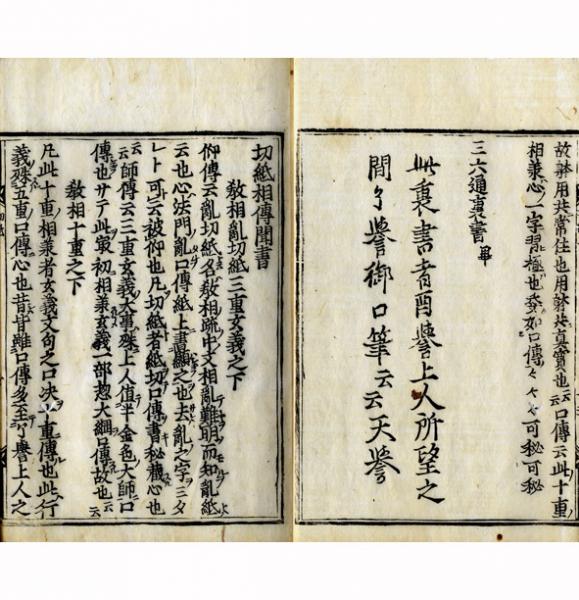 故躰用共常住也用躰共真實也云云口傳云此十重
相兼心一字習極也委如口傳々々々可秘可秘
三六通裏書畢
此裏書者酉譽上人所望之
間了譽御口筆云云天譽
切紙相傳聞書
教相亂切紙三重玄義之下
仰傳云亂切紙名教相疏中文相亂難明而知亂紙
云也心法門亂口傳紙上書顯之也去亂之字三タ
レト可云被仰也凡切紙者紙切口傳書秘藏心也
云云師傳云三重玄義大事殊上人值半金色大師口
傳也サテ此最初相兼玄義一部惣大綱口傳故也云云
教相十重之下
凡此十重相兼者玄義文句之口決一重傳也此行
義殊五重口傳心也昔皆雖口傳多至了譽上人之